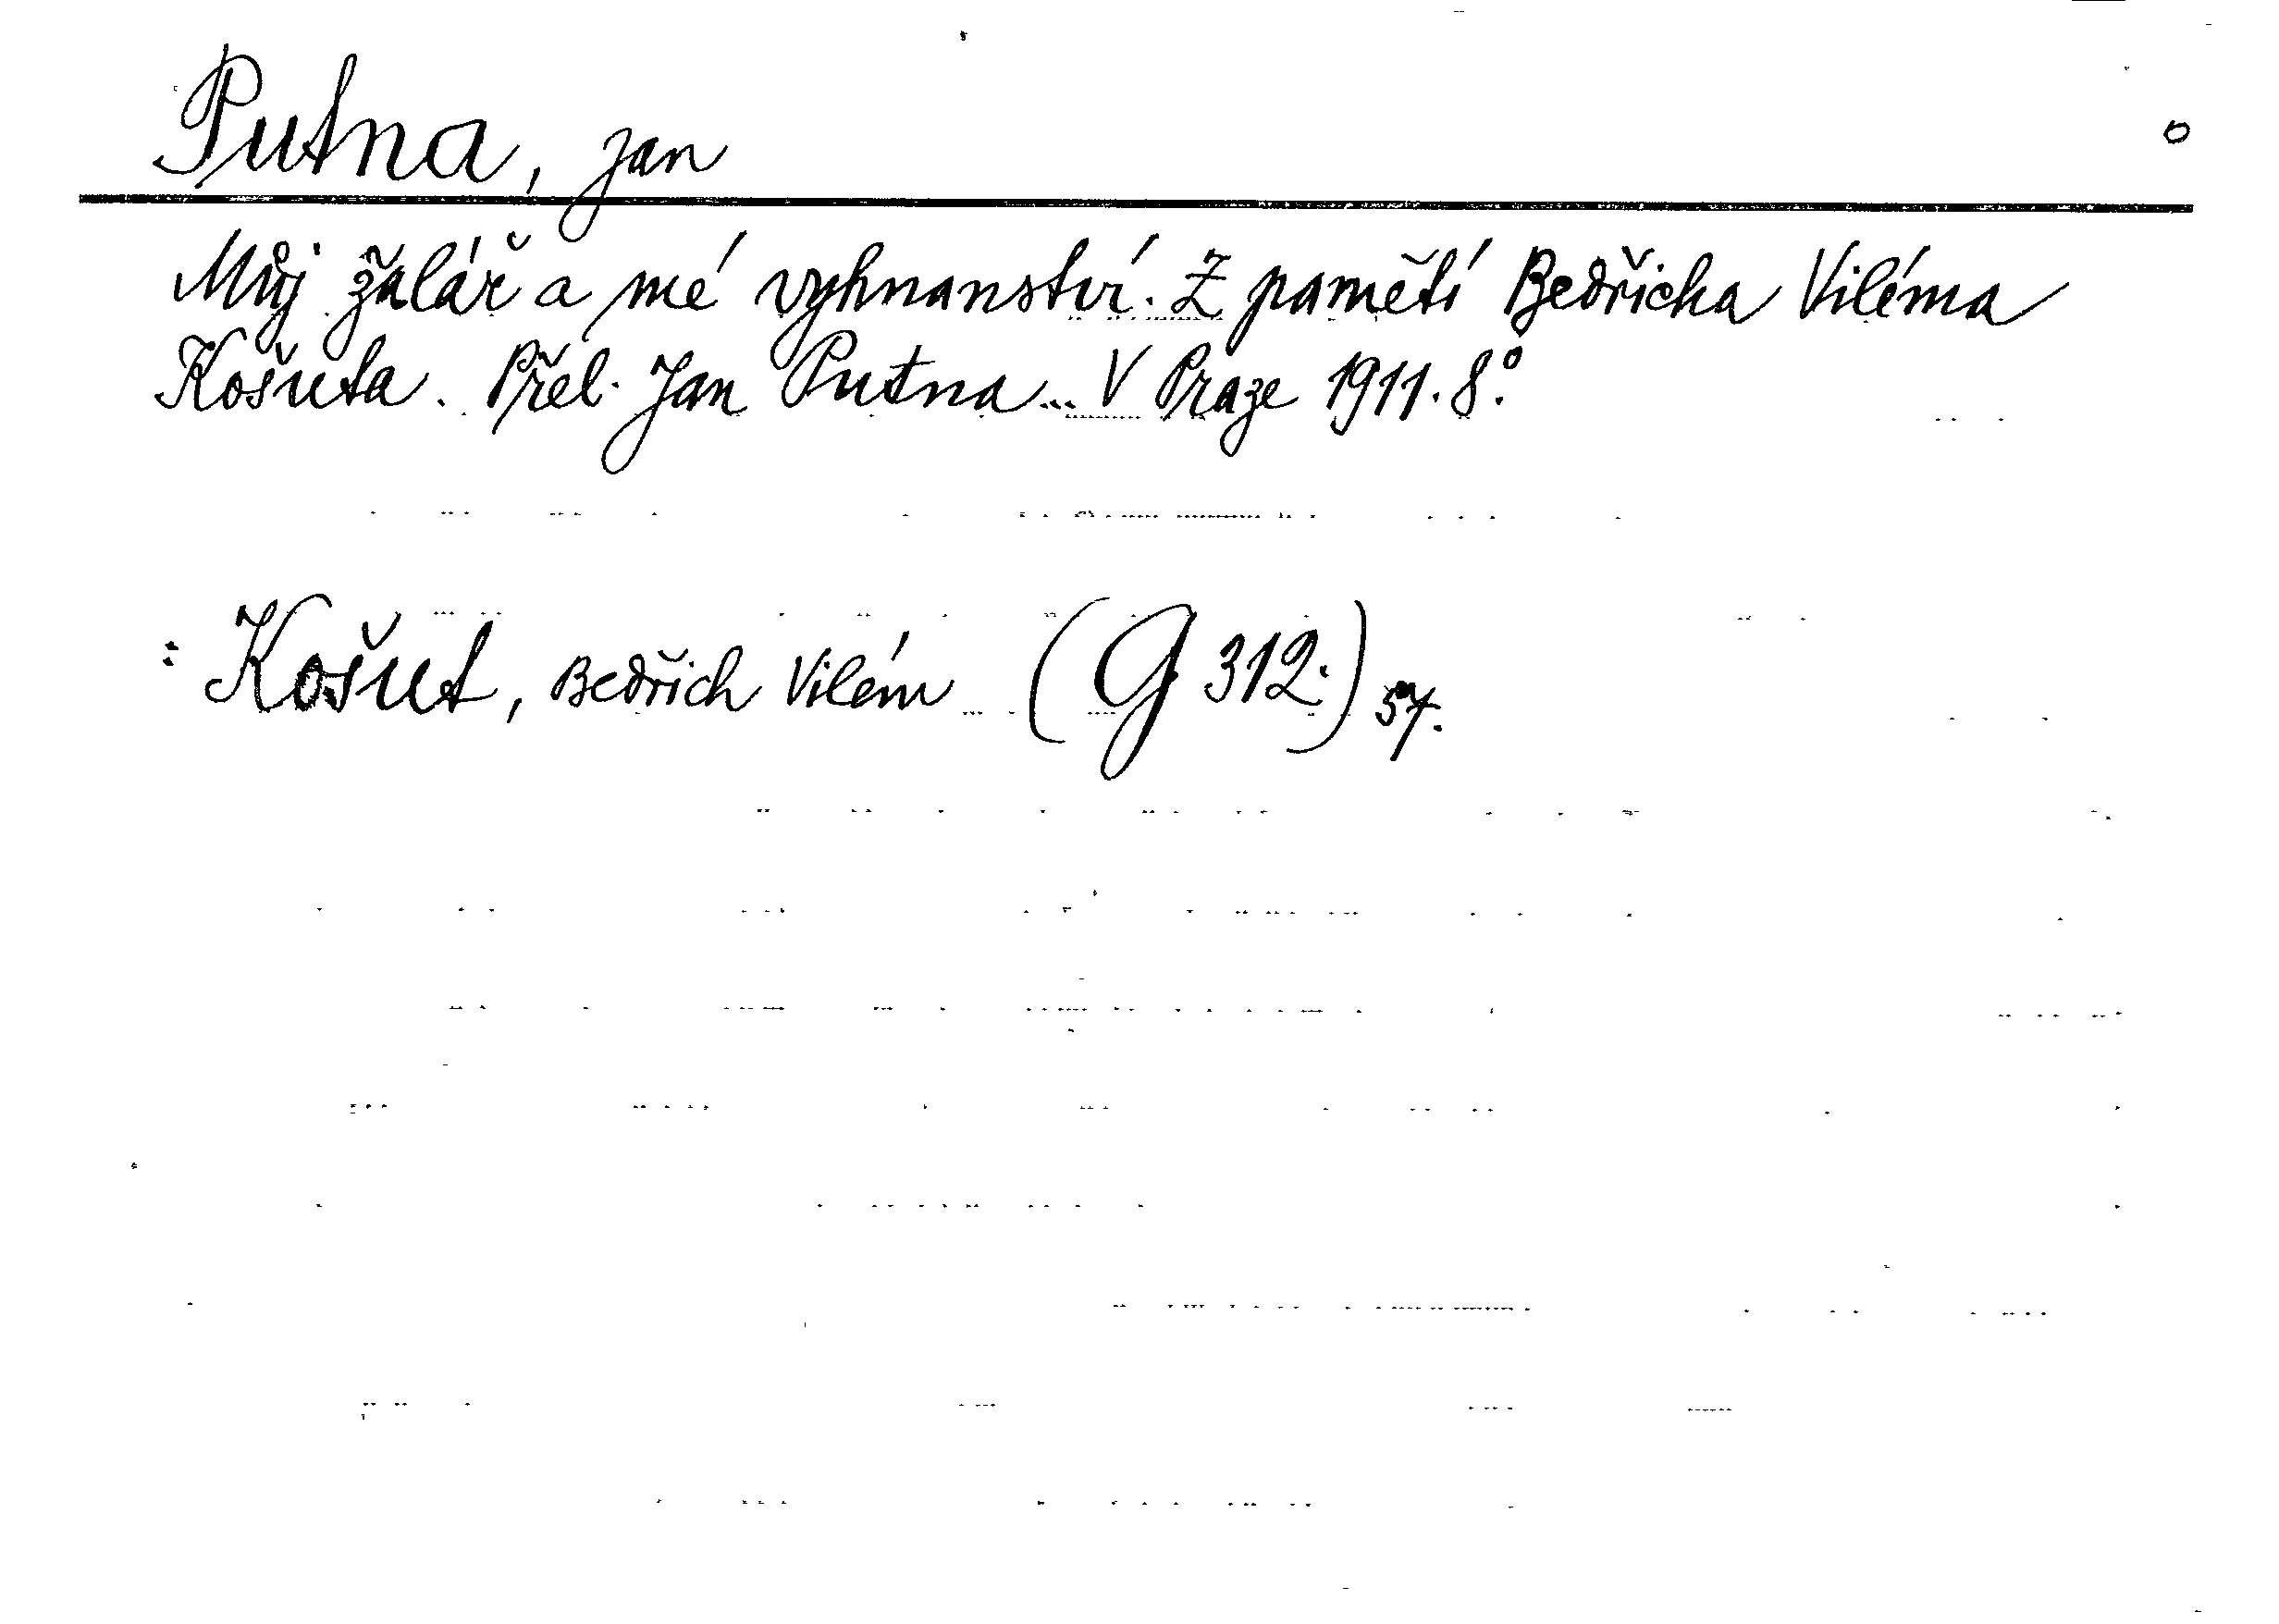 Putna, Jan
o
Můj žalář a mé vyhnanství. Z pamětí Bedřicha Viléma
Košuta. Přel. Jan Putna... V Praze 1911. 8°.
: Košut, Bedřich Vilém (G 312.) 57.